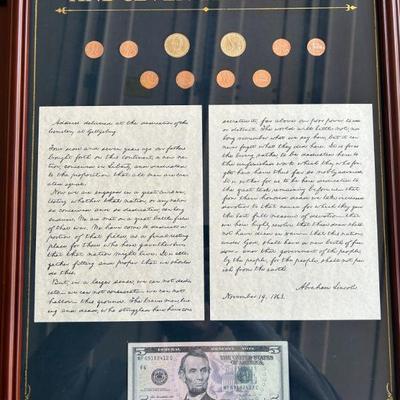 Address delivered at the dedication of the
Cemetery at Gettysburg.
Four score and seven years ago our fathers
brought forth on this continent, a new na-
tion, conceived in Liberty, and dedicated
to the proposition that all men are cre-
ated equal.
Now we are engaged in a great civil war,
testing whether that nation, or any nation
so conceived and so dedicated, can long
endure. We are met on a great battle field
of that war. We have come to dedicate a
portion of that field, as a final resting
place for those who here gave their lives
that that nation might live. It is alto-
gether fitting and proper that we should
do this.
But, in a larger sense, we can not dedi-
cate—we can not consecrate—we can not
hallow—this ground. The brave men, liv-
ing and dead, who struggled here have con-
secrated it, far above our poor power to add
or detract. The world will little note, nor
long remember what we say here, but it can
never forget what they did here. It is for us
the living, rather, to be dedicated here to
the unfinished work which they who fou-
ght here have thus far so nobly advanced.
It is rather for us to be here dedicated to
the great task remaining before us—that
from these honored dead we take increased
devotion to that cause for which they gave
the last full measure of devotion—that
we here highly resolve that these dead shall
not have died in vain—that this nation,
under God, shall have a new birth of free-
dom—and that government of the people,
by the people, for the people, shall not per-
ish from the earth.
Abraham Lincoln.
November 19, 1863.
5